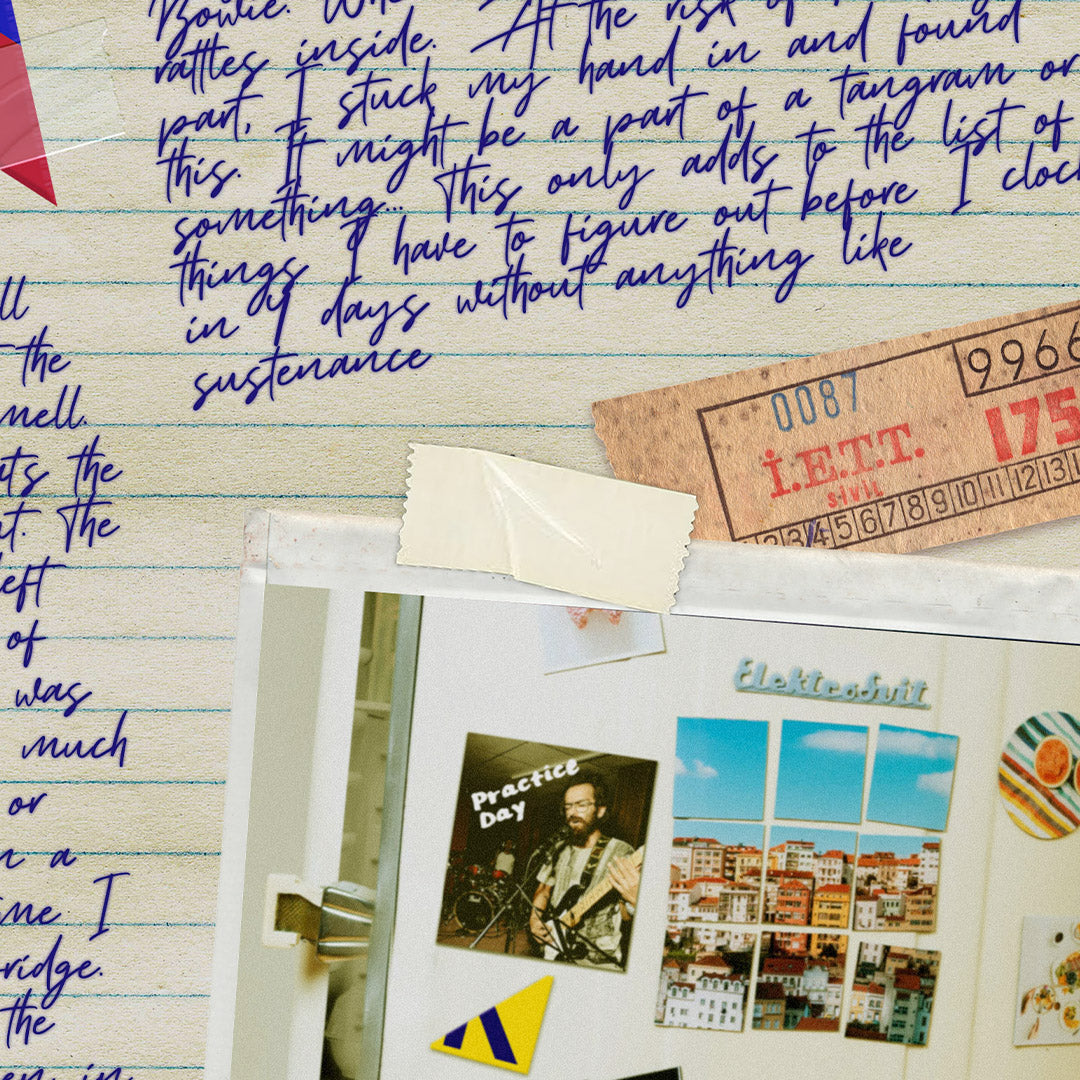 Bowie.
rattles inside. At the risk of
part, I stuck my hand in and found
this. It might be a part of a tangram or
something... This only adds to the list of
things I have to figure out before I clock
in 4 days without anything like
sustenance
ll
the
mell.
ts the
t. The
eft
of
was
much
or
a
me I
ridge.
the
in
0087
9966
İ.E.T.T.
175
sivil
2 3 4 5 6 7 8 9 10 11 12 13
ElektroSvit
Practice
Day